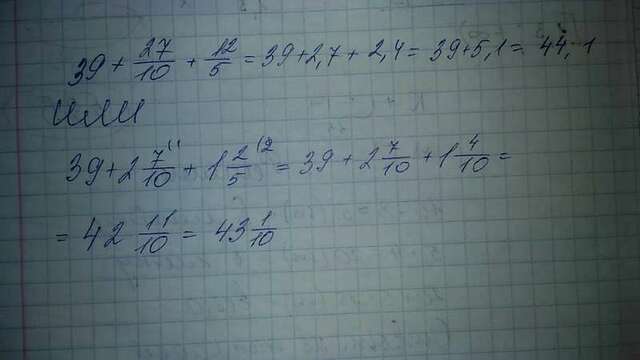 39 + 27/10 + 12/5 = 39+2,7 + 2,4 = 39+5,1 = 44,1
ИЛИ
39+2 7/10 ^(1 + 1 2/5 ^(2 = 39 + 2 7/10 + 1 4/10 =
= 42 11/10 = 43 1/10